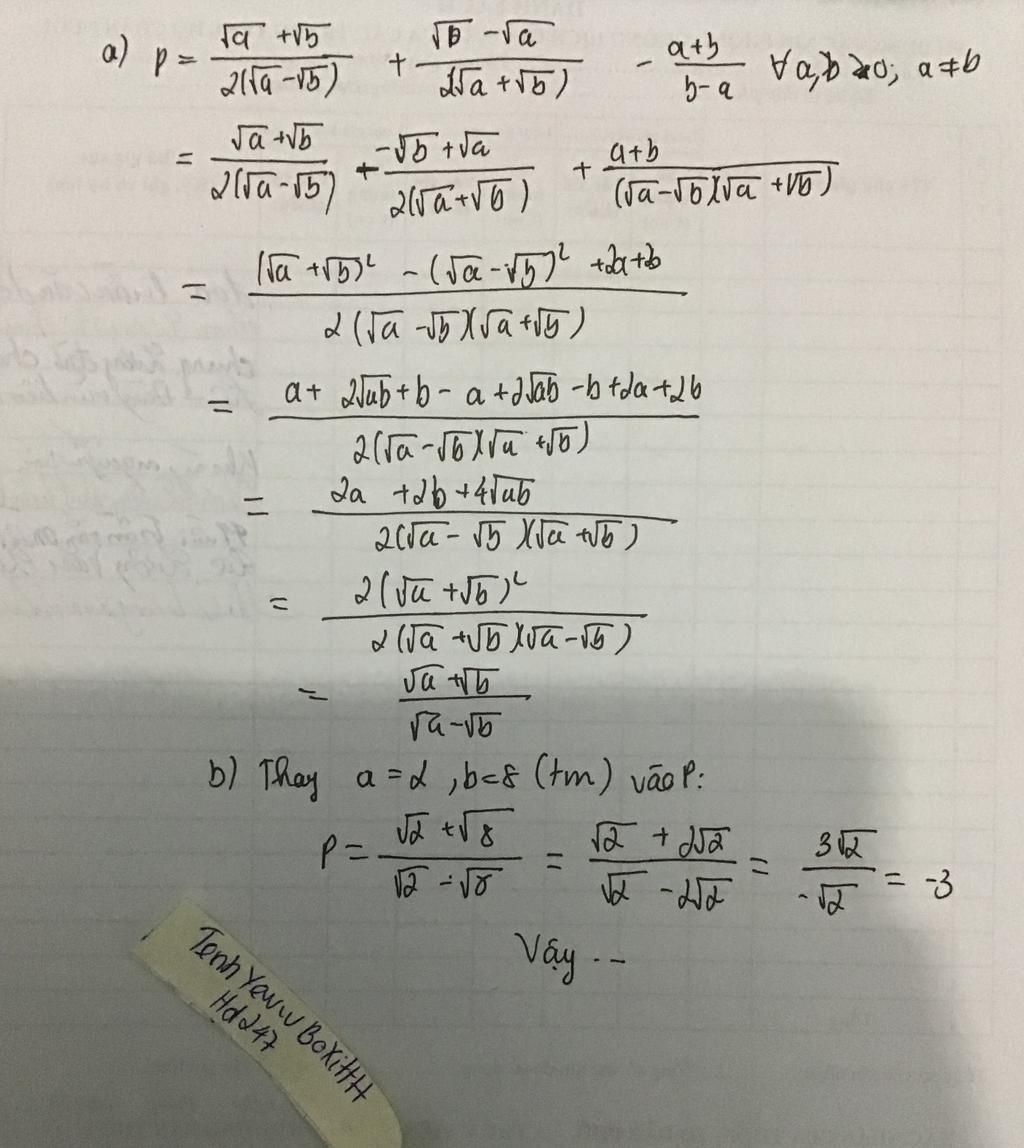 a) P = (√a + √b)/(2(√a - √b)) + (√b - √a)/(2√a + √b) - (a+b)/(b-a) ∀ a, b ≥ 0; a ≠ b
= (√a + √b)/(2(√a - √b)) + (-√b + √a)/(2(√a + √b)) + (a+b)/((√a - √b)(√a + √b))
= ((√a + √b)² - (√a - √b)² + 2a + 2b)/(2(√a - √b)(√a + √b))
= (a + 2√ab + b - a + 2√ab - b + 2a + 2b)/(2(√a - √b)(√a + √b))
= (2a + 2b + 4√ab)/(2(√a - √b)(√a + √b))
= (2(√a + √b)²)/(2(√a + √b)(√a - √b))
= (√a + √b)/(√a - √b)
b) Thay a = 2, b = 8 (tm) vào P:
P = (√2 + √8)/(√2 - √8) = (√2 + 2√2)/(√2 - 2√2) = (3√2)/(-√2) = -3
Vậy ..
TenhYeuw BoKitHH
Hd247